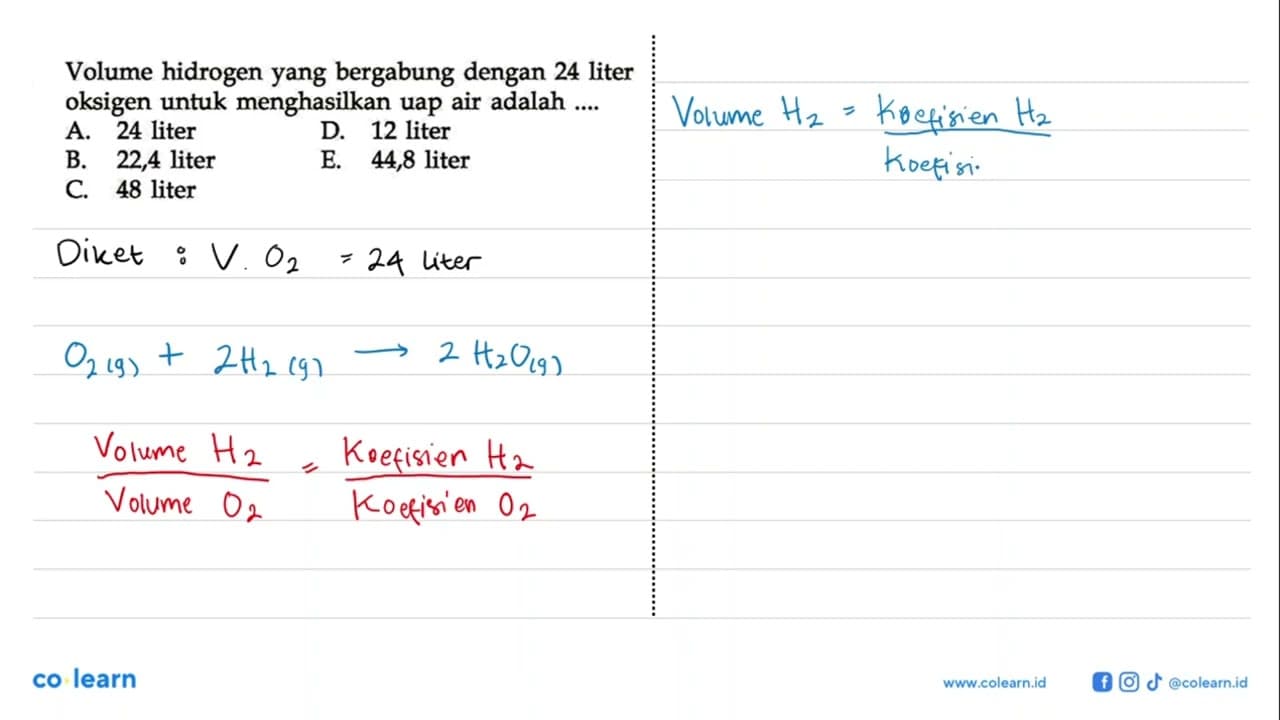 Volume hidrogen yang bergabung dengan 24 liter
oksigen untuk menghasilkan uap air adalah ....
A. 24 liter D. 12 liter
B. 22,4 liter E. 44,8 liter
C. 48 liter
Diket : V. O2 = 24 liter
O2 (g) + 2H2 (g) → 2 H2O(g)
Volume H2 = Koefisien H2
Volume O2 Koefisien O2
Volume H2 = Koefisien H2
Koefisi.
co learn
www.colearn.id @colearn.id